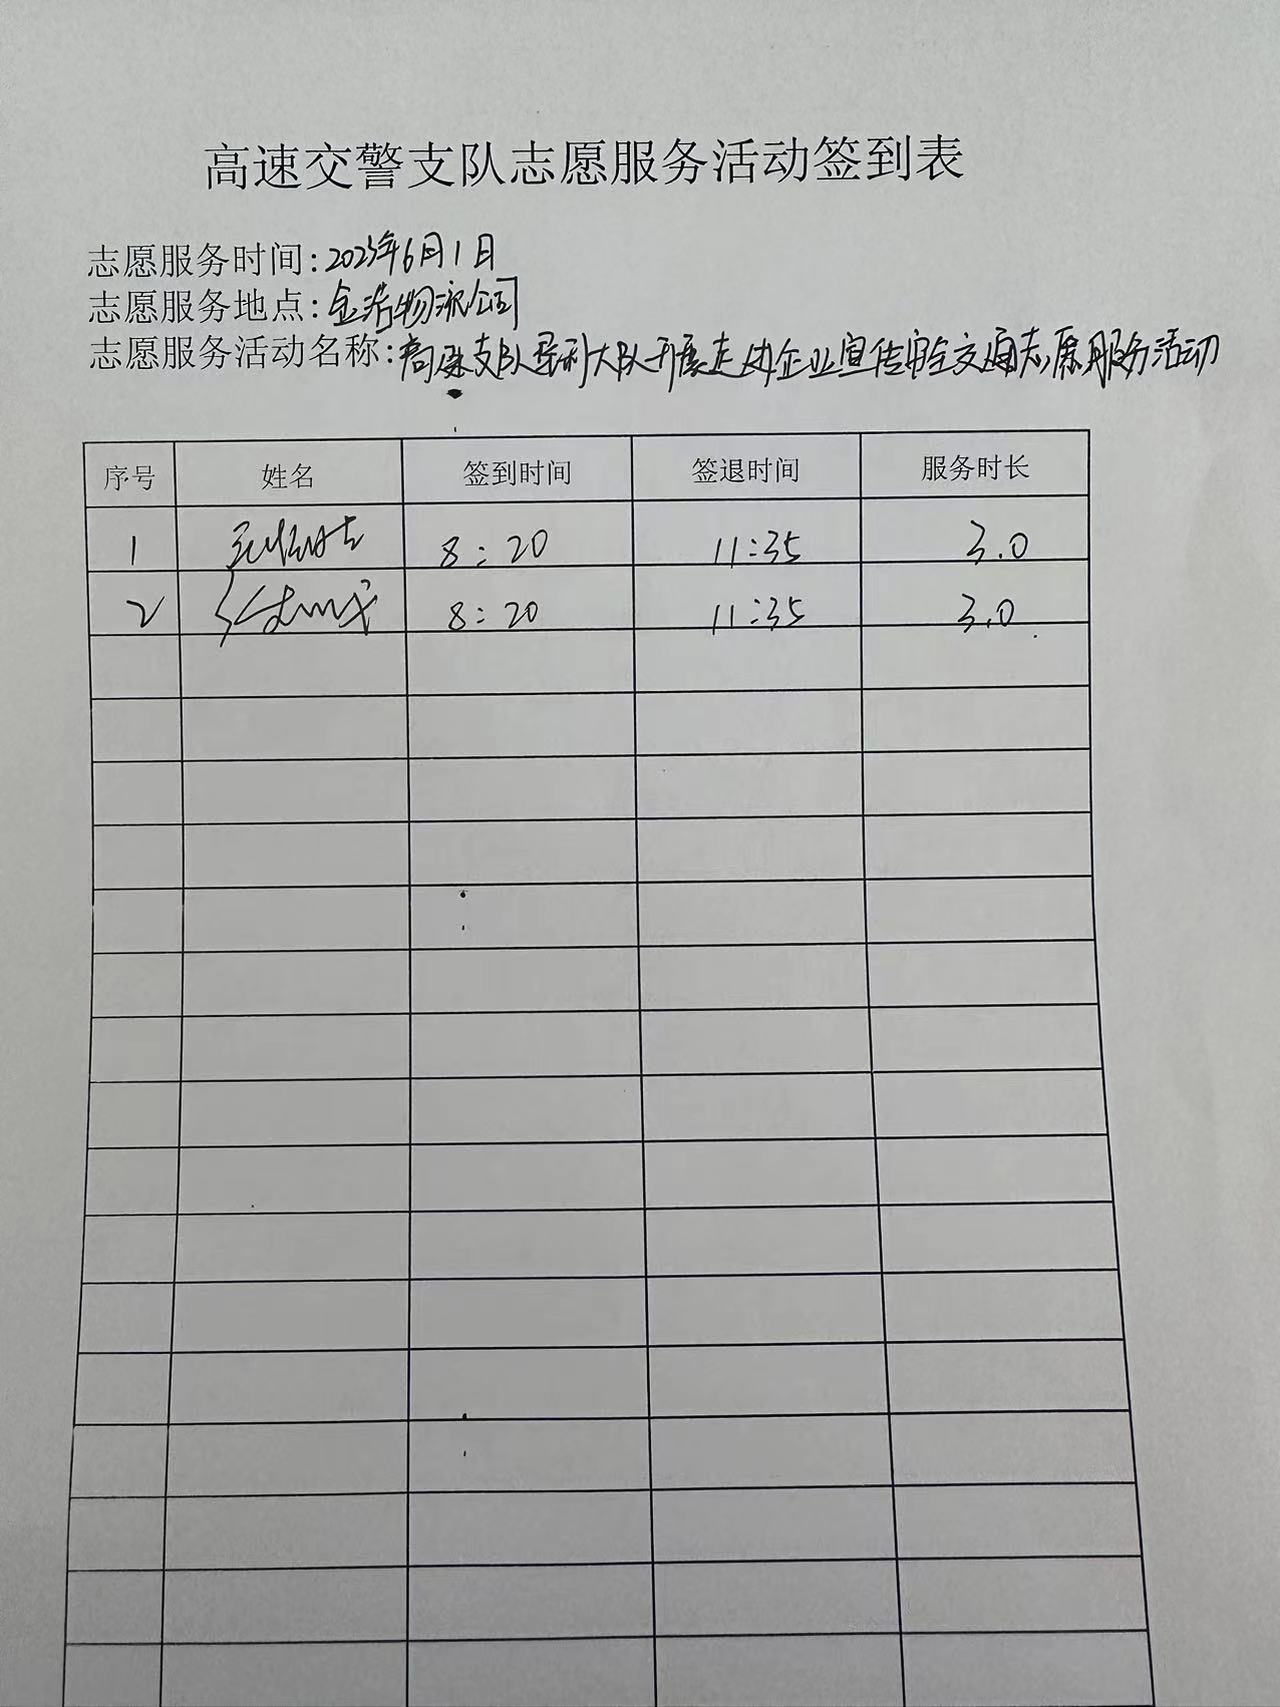 高速交警支队志愿服务活动签到表
志愿服务时间:2023年6月1日
志愿服务地点:物流公司
志愿服务活动名称:高速支队大队开展走进企业宣传安全交通志愿服务活动
序号 姓名 签到时间 签退时间 服务时长
1 8:20 11:35 3.0
2 8:20 11:35 3.0